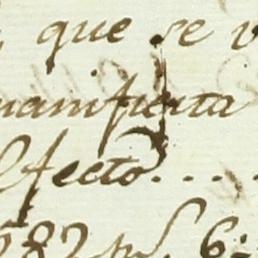 que se v
manifiesta
efecto....
282 ps. 6